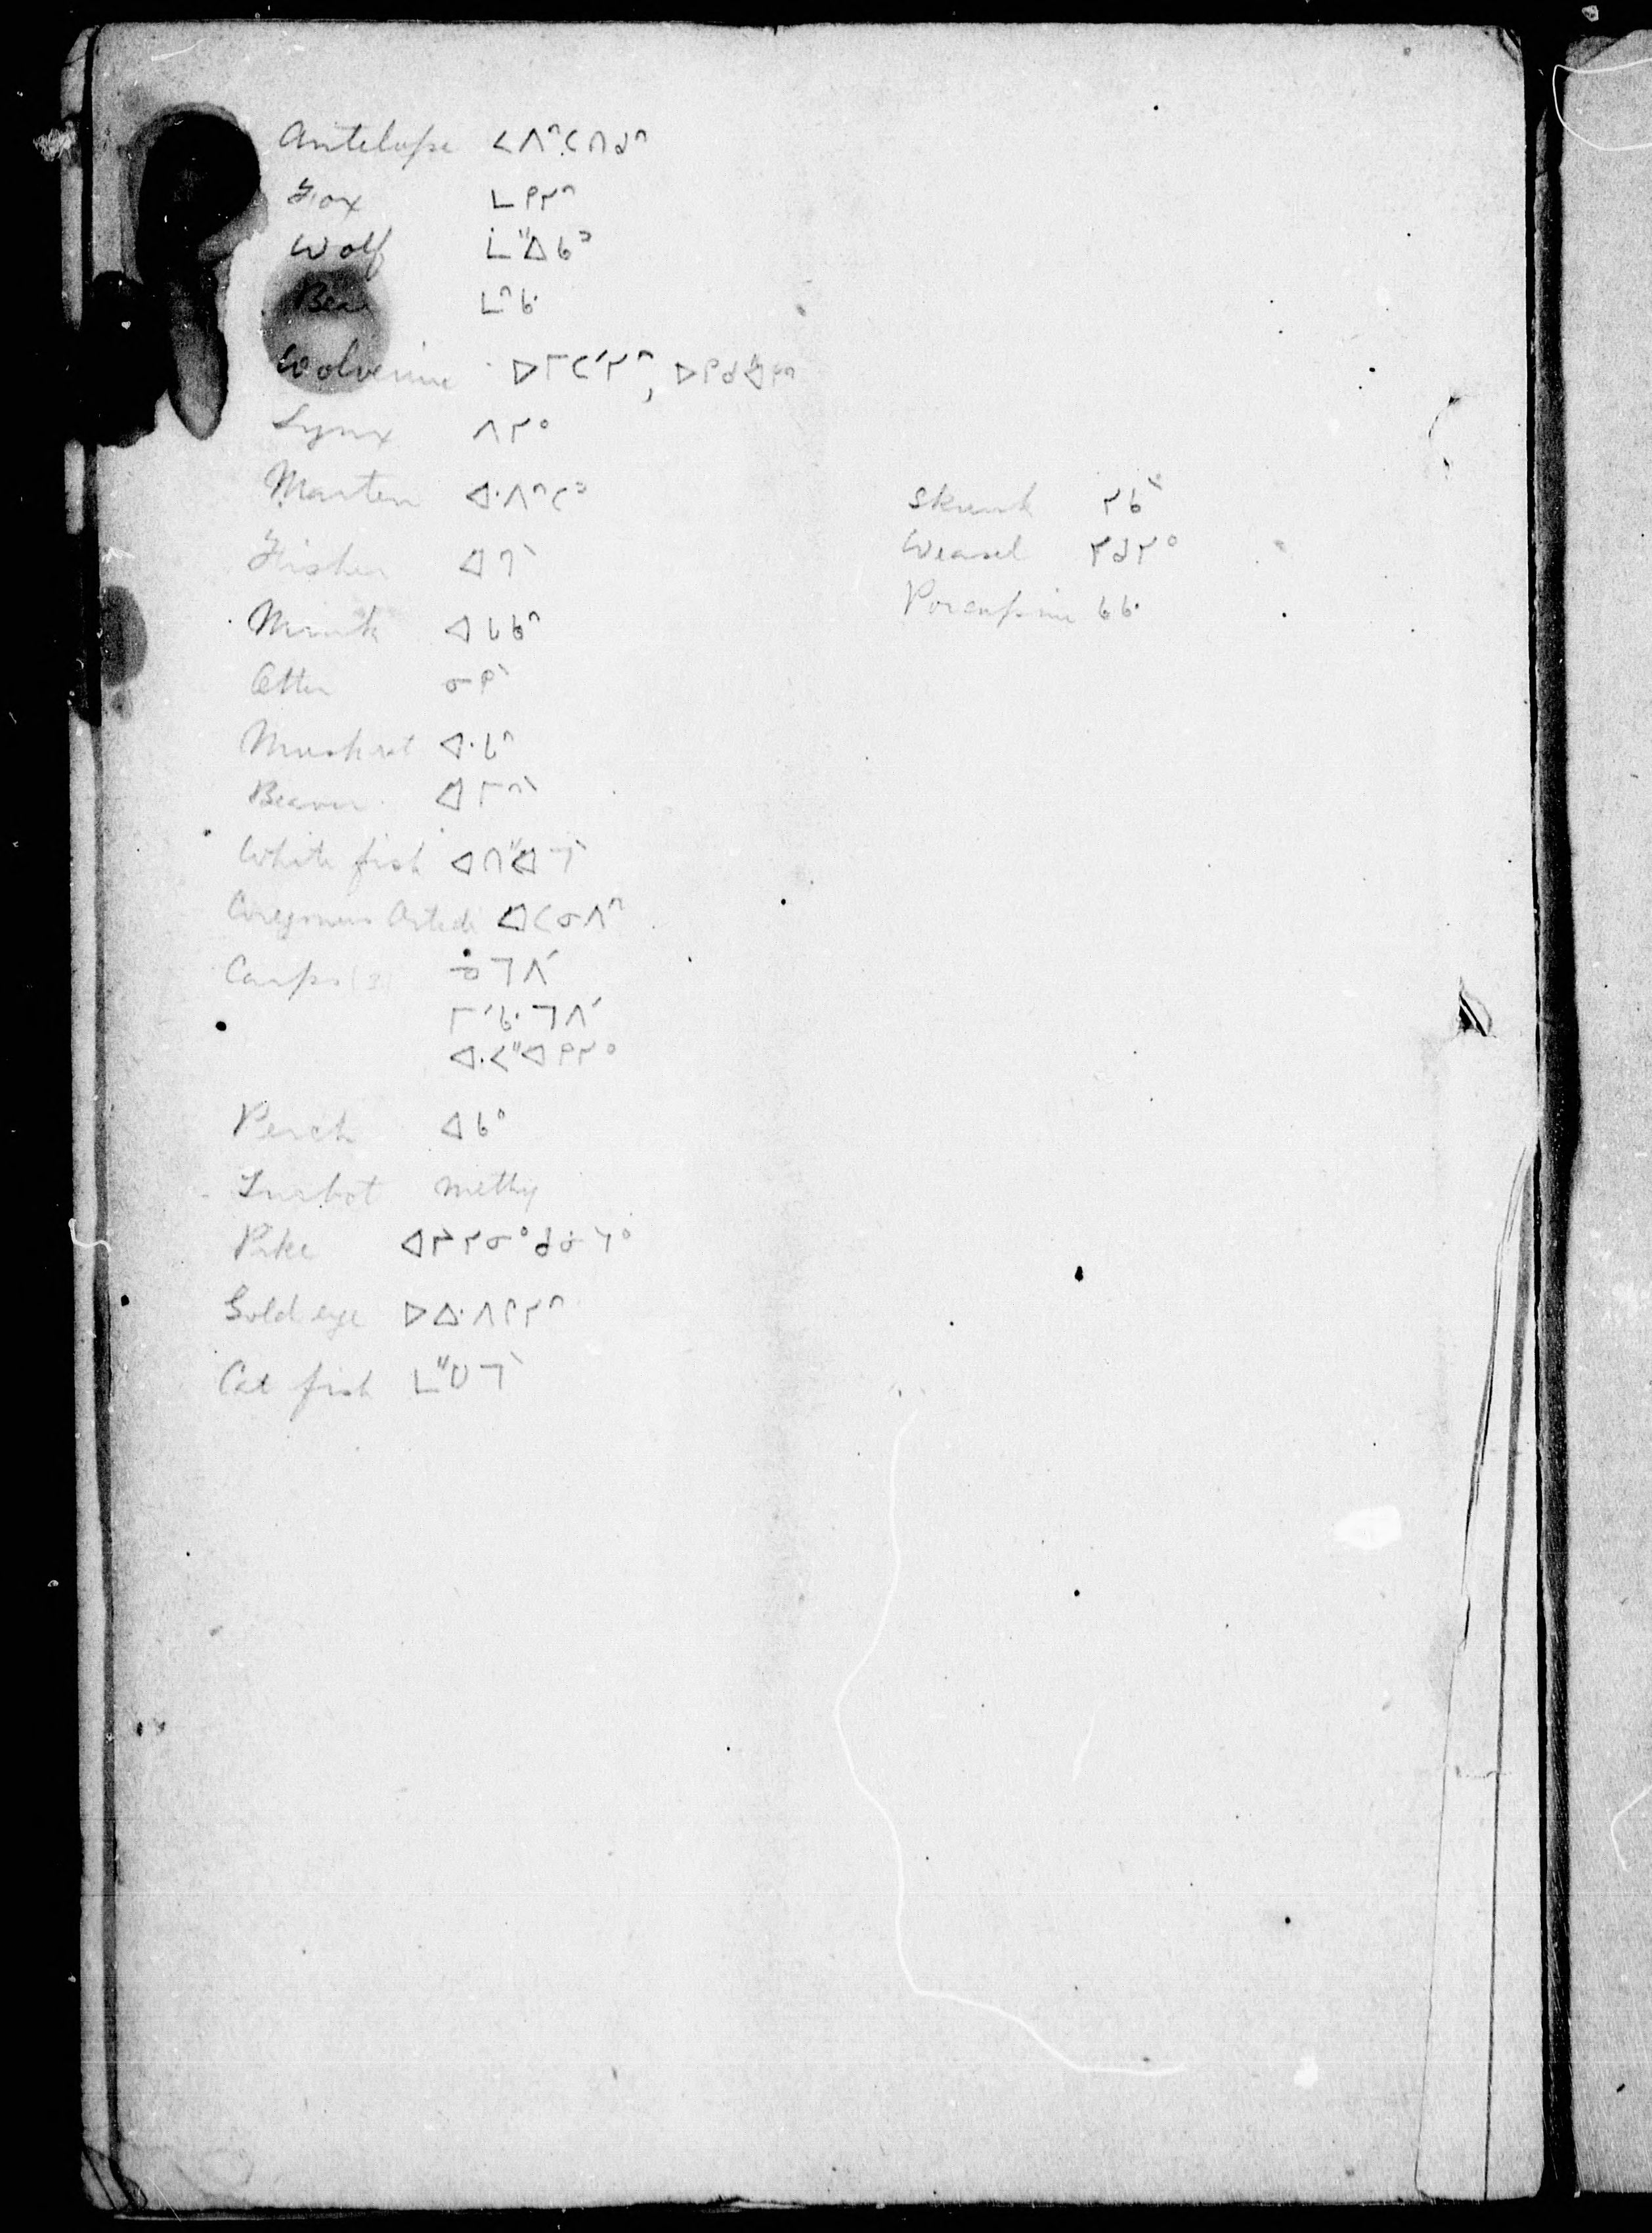 Antelope ᐸᐱᐢᒐᑎᑯᐢ
Fox ᒪᑭᓯᐢ
Wolf ᒫᐦᐃᑲᐣ
Bear ᒪᐢᑿ
Wolverine ᐅᒥᑕᐟᓯᐢ, ᐅᑭᑯᐦᐋᑭᐢ
Lynx ᐱᓯᐤ
Marten ᐘᐱᐢᑕᐣ
Fisher ᐊᒉᐠ
Mink ᐊᒐᑲᐢ
Otter ᓂᑭᐠ
Muskrat ᐘᒐᐢ
Beaver ᐊᒥᐢᐠ
White fish ᐊᑎᐦᐊᒣᐠ
Coregonus Artedi ᐊᑕᓂᐱᐢ
Carps (3) ᓈᒣᐱᐟ
ᒥᐟᑿᒣᐱᐟ
ᐘᐸᐦᐊᑭᓯᐤ
Perch ᐊᑲᐤ
Turbot methy
Pike ᐊᓰᓯᓂᐤᑯᓃᓭᐤ
Gold eye ᐅᐏᐱᒋᓯᐢ
Cat fish ᒪᐦᑌᒣᐠ
Skunk ᓯᑲᐠ
Weasel ᓯᑯᓯᐤ
Porcupine ᑲᑿ